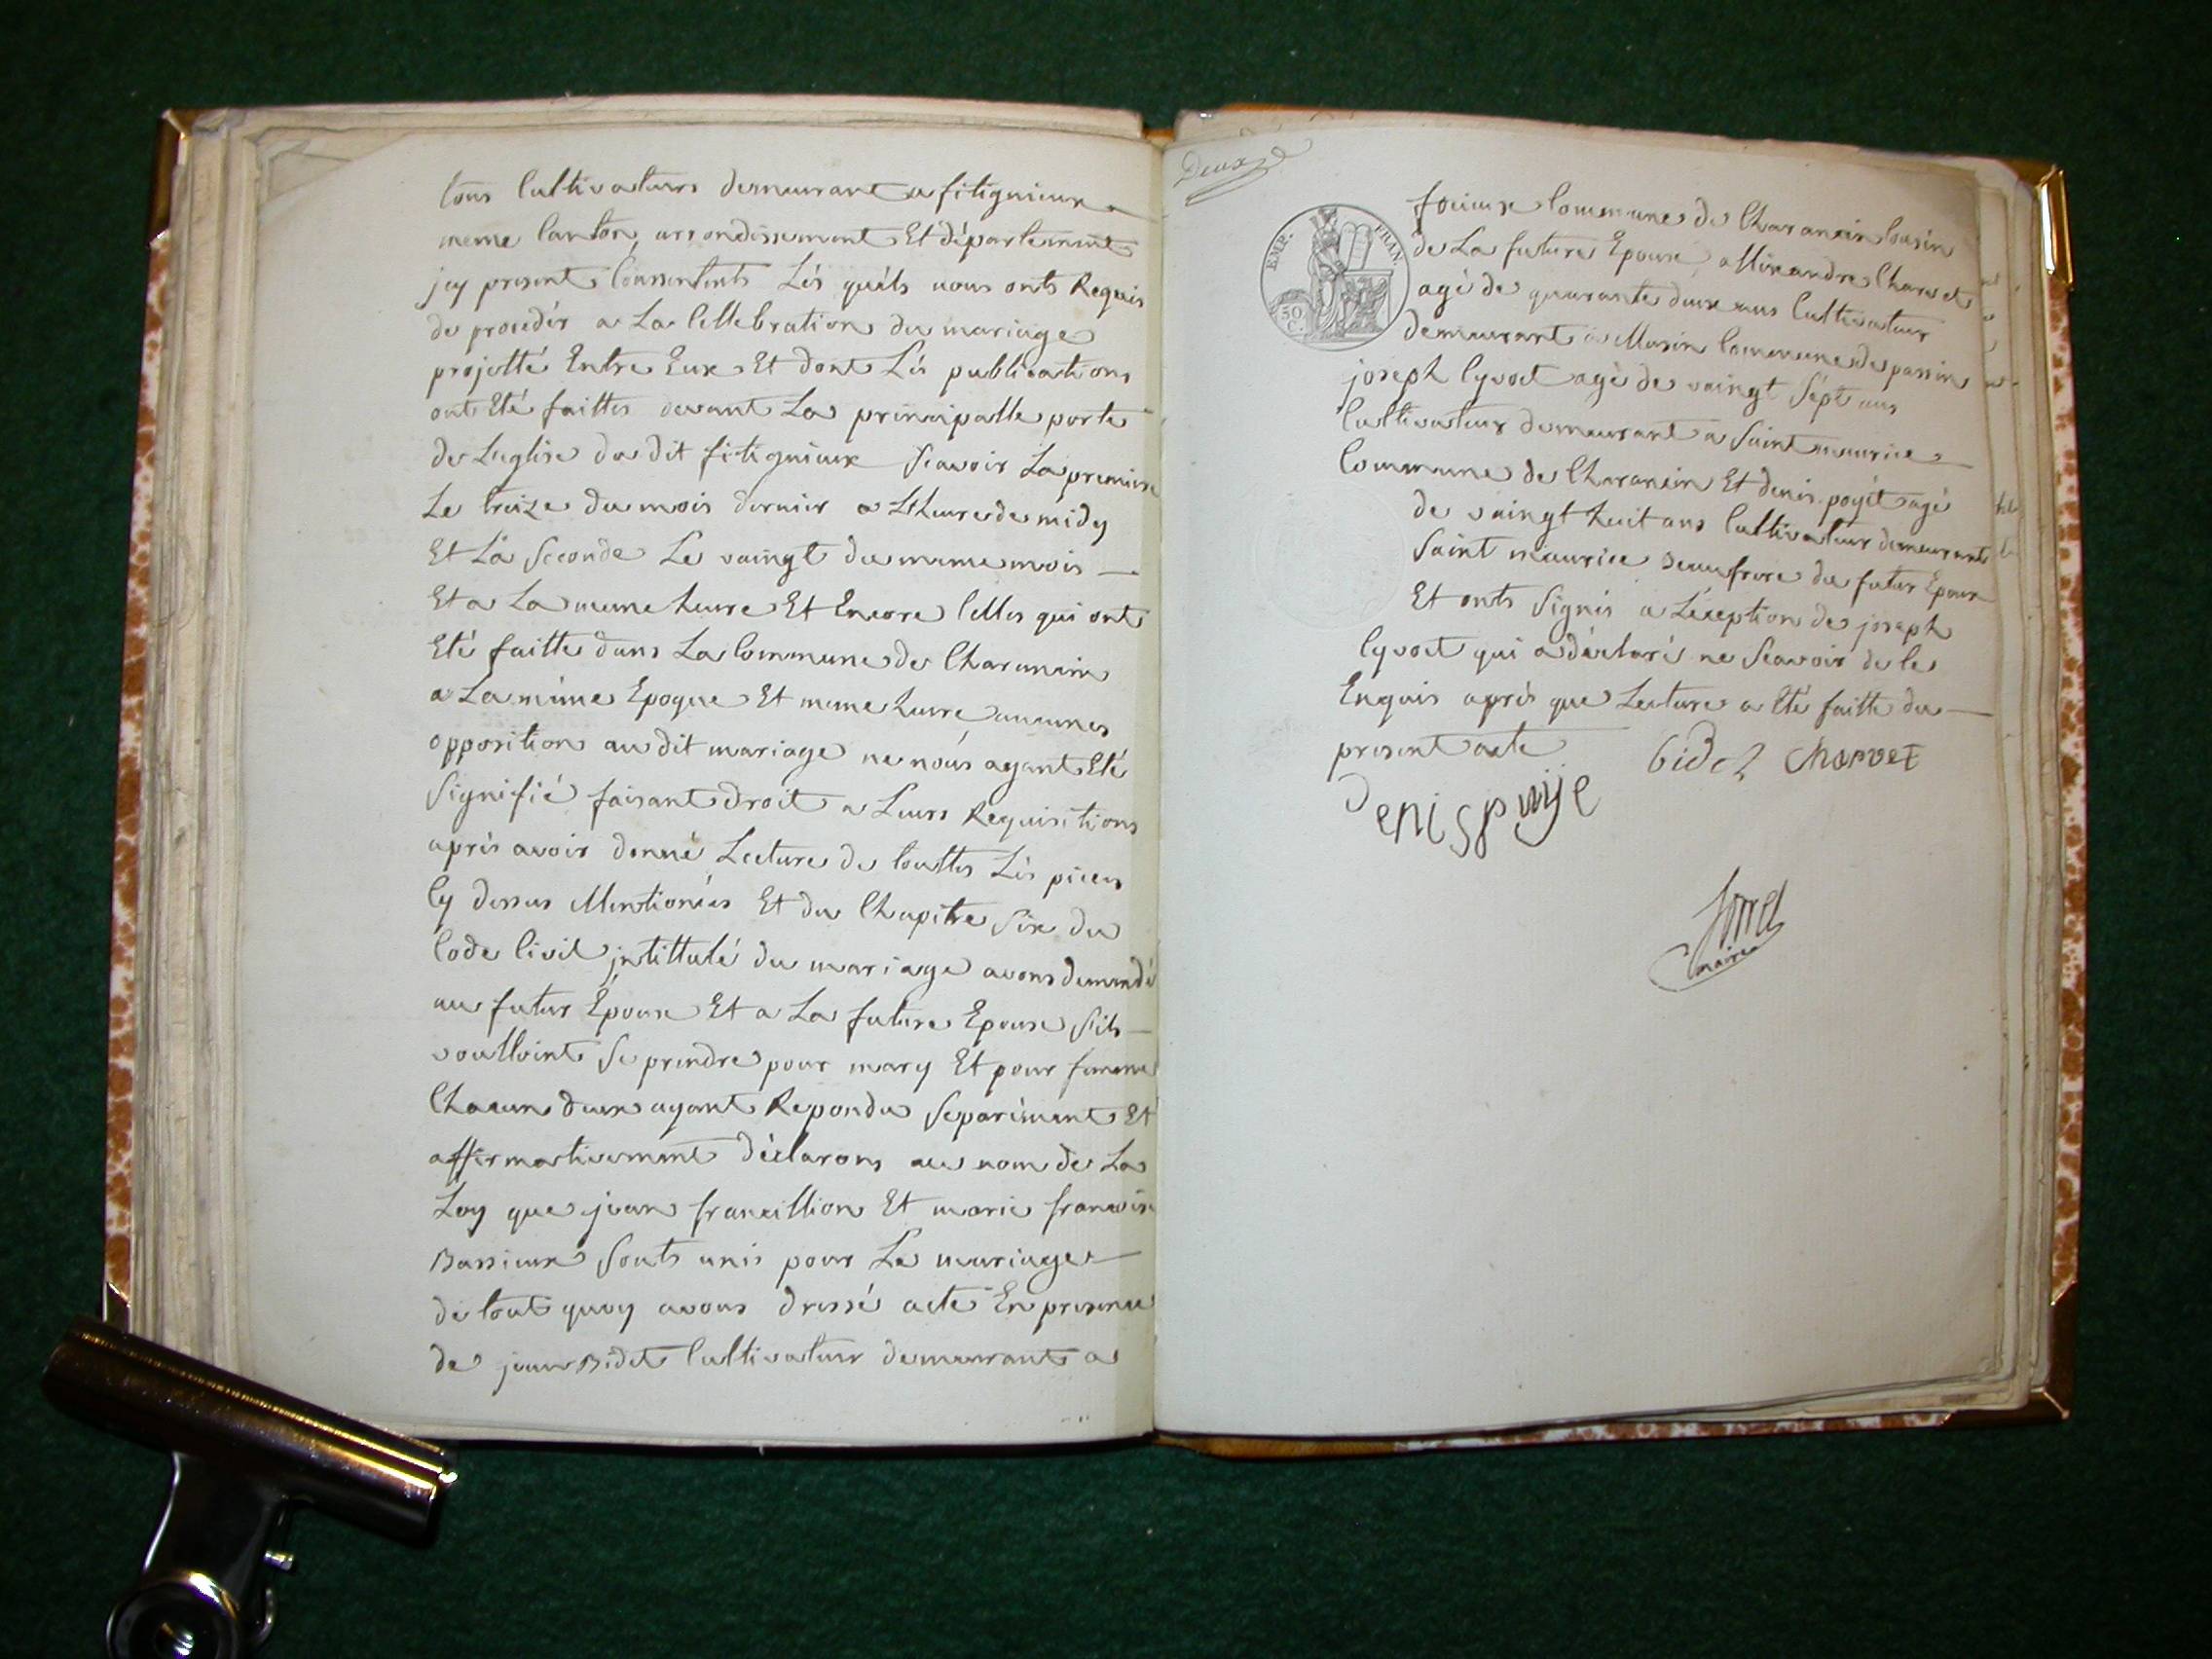 tous Cultivateurs demeurant a fitignieux
meme Canton, arrondissement Et département
jcy present Conssentents Lés quéls nous onts Requis
de procedér a La Cellebration du mariage
projetté Entre Eux Et dont Lés publications
ont Eté faittes devant La principalle porte
de Leglise du dit fitignieux Scavoir La premiere
Le treize du mois dernier a L'heure de midy
Et La Seconde Le vaingt du meme mois —
Et a La meme heure Et Encore Celles qui ont
Eté faitte dans La Commune de Charancin
a La même Epoque Et meme heure aucunes
opposition au dit mariage ne nous ayant Eté
Signifié faisant droit a Leurs Requisitions
aprés avoir donné Lecture de touttes Lés pieces
Cy dessus Mentionées Et du Chapitre Six du
Code Civil jntittulé du mariage avons demandé
au futur Épouse Et a La future Epouse Sils —
voulloint Se prendre pour mary Et pour femme
Chacun deux ayant Repondu Séparément Et
affirmativement déclarons au nom de La
Loy que jean francillion Et marie francoise
Bassieux Sonts unis pour Le mariage —
de tout quoy avons dressé acte En presence
de jean Bidet Cultivateur demeurant a
Deux
EMP. FRAN.
50 C.
focieux Commune de Charancin Cousin
de La future Epouse, allixandre Charvet
agé de quarante deux ans Cultivateur
demeurant a Musin Commune de passin
joseph Cyvoct agé de vaingt Sépt ans
Cultivateur demeurant a Saint maurice —
Commune de Charancin Et denis poyét agé
de vaingt huit ans Cultivateur demeurant
Saint maurice Beaufrere du futur Epoux
Et onts Signés a Léxeption de joseph
Cyvoct qui a déclaré ne Scavoir de le
Enquis aprés que Lecture a Eté faitte du —
present acte
bidet Charvet
Denis puije
maire